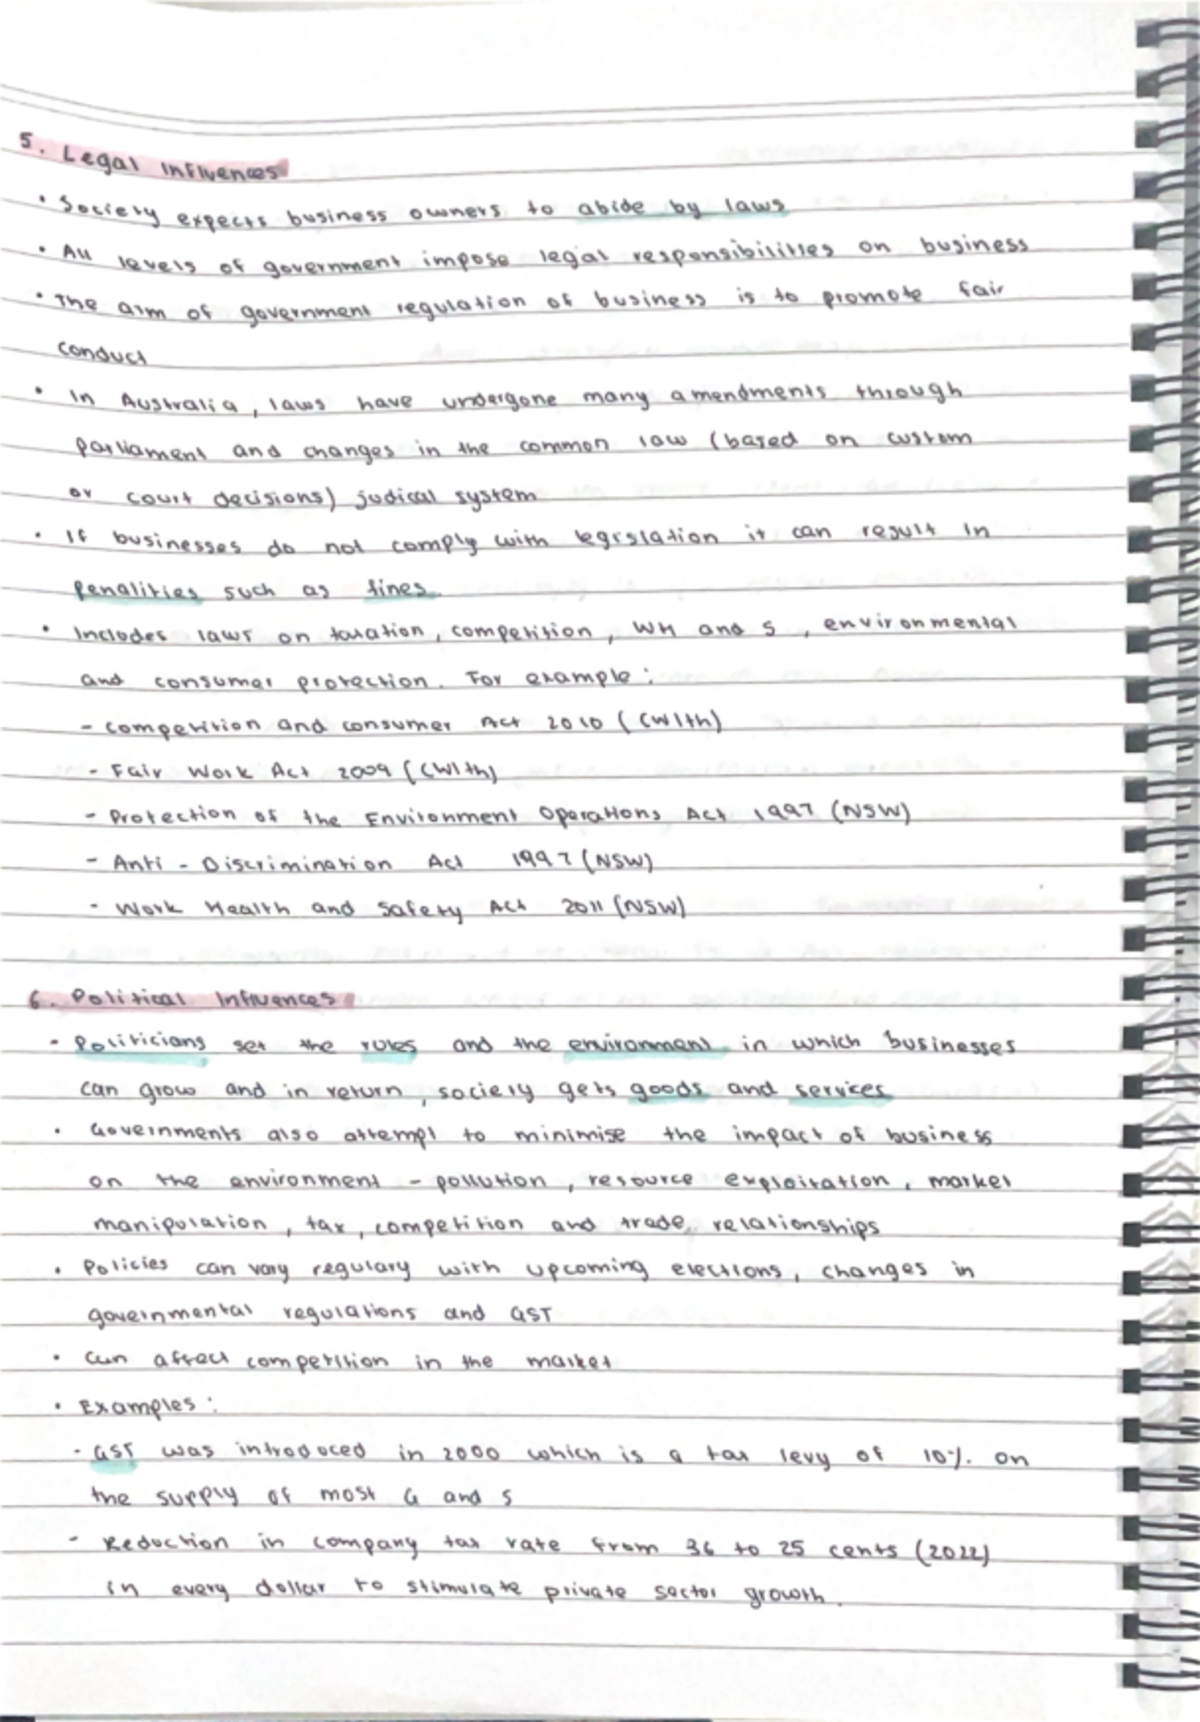 5. Legal Influences
• Society expects business owners to abide by laws
• All levels of government impose legal responsibilities on business
• The aim of government regulation of business is to promote fair
conduct
• In Australia, laws have undergone many amendments through
parliament and changes in the common law (based on custom
or court decisions) judical system
• If businesses do not comply with legislation it can result in
penalities such as fines.
• Includes laws on taxation, competition, WH and S, environmental
and consumer protection. For example:
- Competition and consumer Act 2010 (CWlth)
- Fair Work Act 2009 (CWlth)
- Protection of the Environment Operations Act 1997 (NSW)
- Anti - Discrimination Act 1997 (NSW)
- Work Health and Safety Act 2011 (NSW)
6. Political Influences
- Politicians set the rules and the environment in which businesses
can grow and in return, society gets goods and services
• Governments also attempt to minimise the impact of business
on the environment - pollution, resource exploitation, market
manipulation, tax, competition and trade relationships
• Policies can vary regulary with upcoming elections, changes in
governmental regulations and GST
• Can affect competition in the market
• Examples:
- GST was introduced in 2000 which is a tax levy of 10% on
the supply of most G and S
- Reduction in company tax rate from 36 to 25 cents (2022)
in every dollar to stimulate private sector growth.